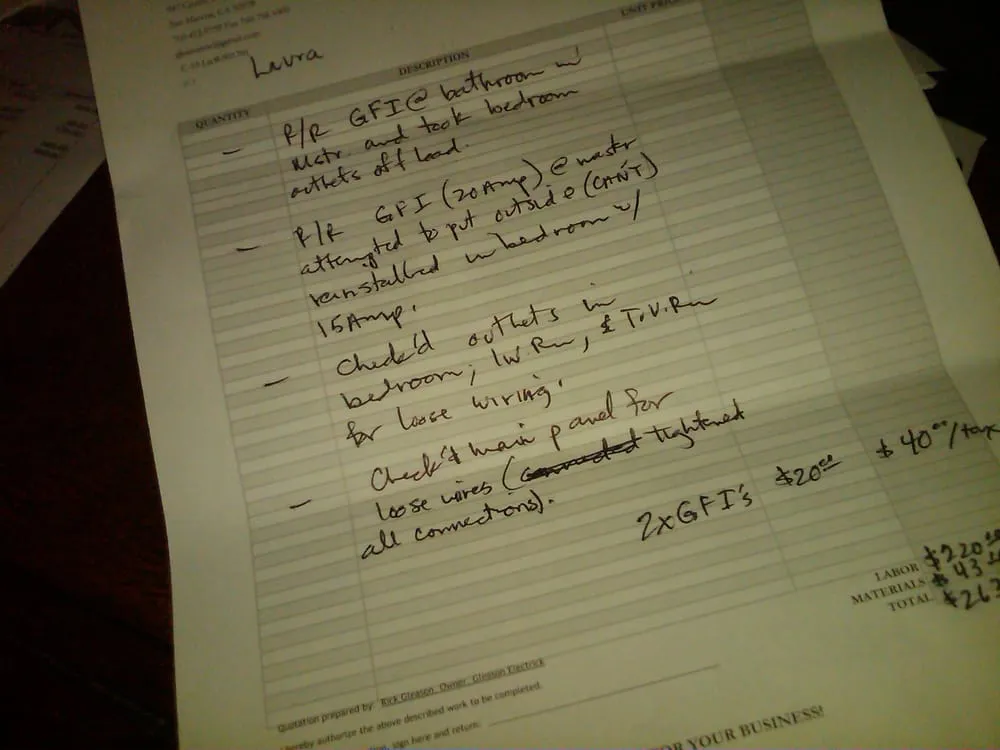 San Marcos, CA
Fax 760
C-10 Lic#
Laura
QUANTITY DESCRIPTION UNIT PRICE
– R/R GFI @ bathroom w/
Mstr. and took bedroom
outlets off load.
– R/R GFI (20Amp) @ master
attempted to put outside (CAN'T)
reinstalled in bedroom w/
15Amp.
– Check'd outlets in
bedroom, lw. Rm, & T.V. Rm
for loose wiring.
– Check'd main panel for
loose wires ( tightened
all connections).
2xGFI's $20.00 $40.00/tax
LABOR $220.00
MATERIALS $43.00
TOTAL $263
Quotation prepared by: Rick Gleason, Owner, Gleason Electrick
hereby authorize the above described work to be completed.
sign here and return:
FOR YOUR BUSINESS!